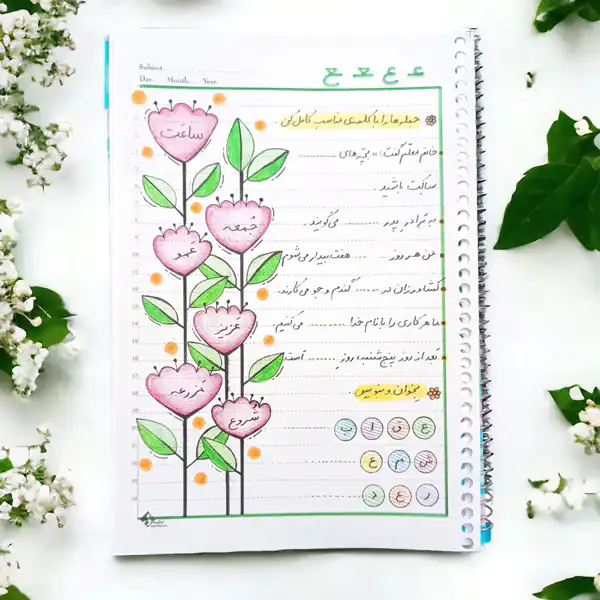 Subject:
Day: Month: Year:
ع ـعـ ـع ع
جمله ها را با کلمه ی مناسب کامل کن.
خانم معلّم گفت: « بچّه های ............
ساکت باشید.
به برادر پدر ........ می گویند.
من هر روز ........ هفت بیدار می شوم.
کشاورزان در ........ گندم و جو می کارند.
ما هر کاری را با نام خدا ........ می کنیم.
بعد از روز پنج شنبه، روز ........ است.
بخوان و بنویس.
ع ق ا ب ............
ش م ع ............
ر ع د ............
ساعت
جمعه
عمو
عزیز
مزرعه
شروع